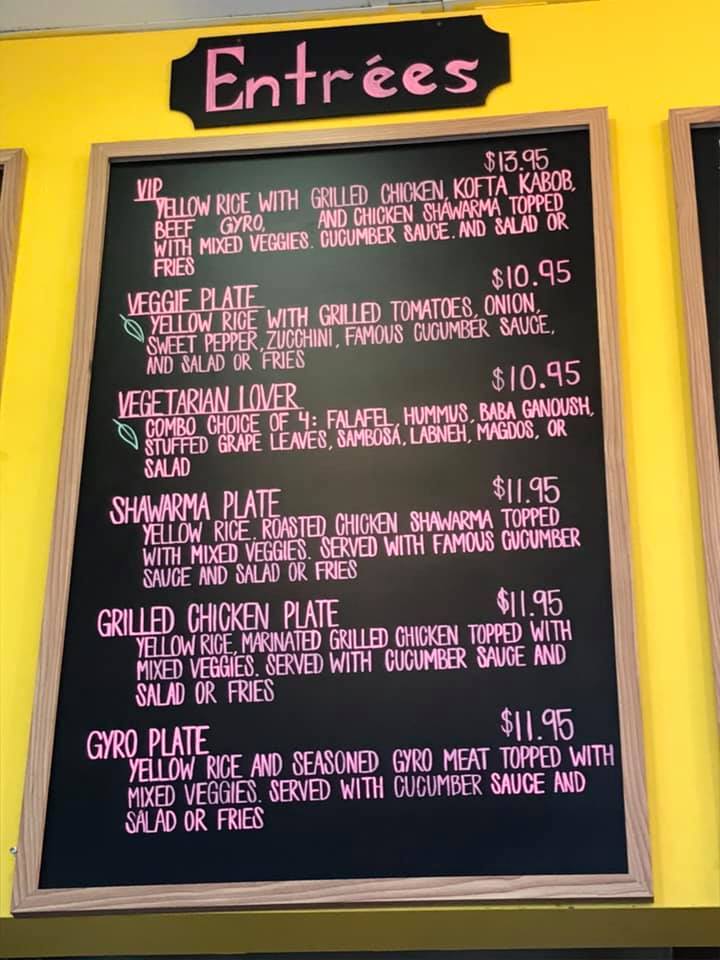 Entrées
$13.95
VIP
YELLOW RICE WITH GRILLED CHICKEN, KOFTA KABOB,
BEEF GYRO, AND CHICKEN SHAWARMA TOPPED
WITH MIXED VEGGIES. CUCUMBER SAUCE. AND SALAD OR
FRIES
$10.95
VEGGIE PLATE
YELLOW RICE WITH GRILLED TOMATOES, ONION,
SWEET PEPPER, ZUCCHINI, FAMOUS CUCUMBER SAUCE,
AND SALAD OR FRIES
$10.95
VEGETARIAN LOVER
COMBO CHOICE OF 4: FALAFEL, HUMMUS, BABA GANOUSH,
STUFFED GRAPE LEAVES, SAMBOSA, LABNEH, MAGDOS, OR
SALAD
$11.95
SHAWARMA PLATE
YELLOW RICE. ROASTED CHICKEN SHAWARMA TOPPED
WITH MIXED VEGGIES. SERVED WITH FAMOUS CUCUMBER
SAUCE AND SALAD OR FRIES
$11.95
GRILLED CHICKEN PLATE
YELLOW RICE, MARINATED GRILLED CHICKEN TOPPED WITH
MIXED VEGGIES. SERVED WITH CUCUMBER SAUCE AND
SALAD OR FRIES
$11.95
GYRO PLATE
YELLOW RICE AND SEASONED GYRO MEAT TOPPED WITH
MIXED VEGGIES. SERVED WITH CUCUMBER SAUCE AND
SALAD OR FRIES